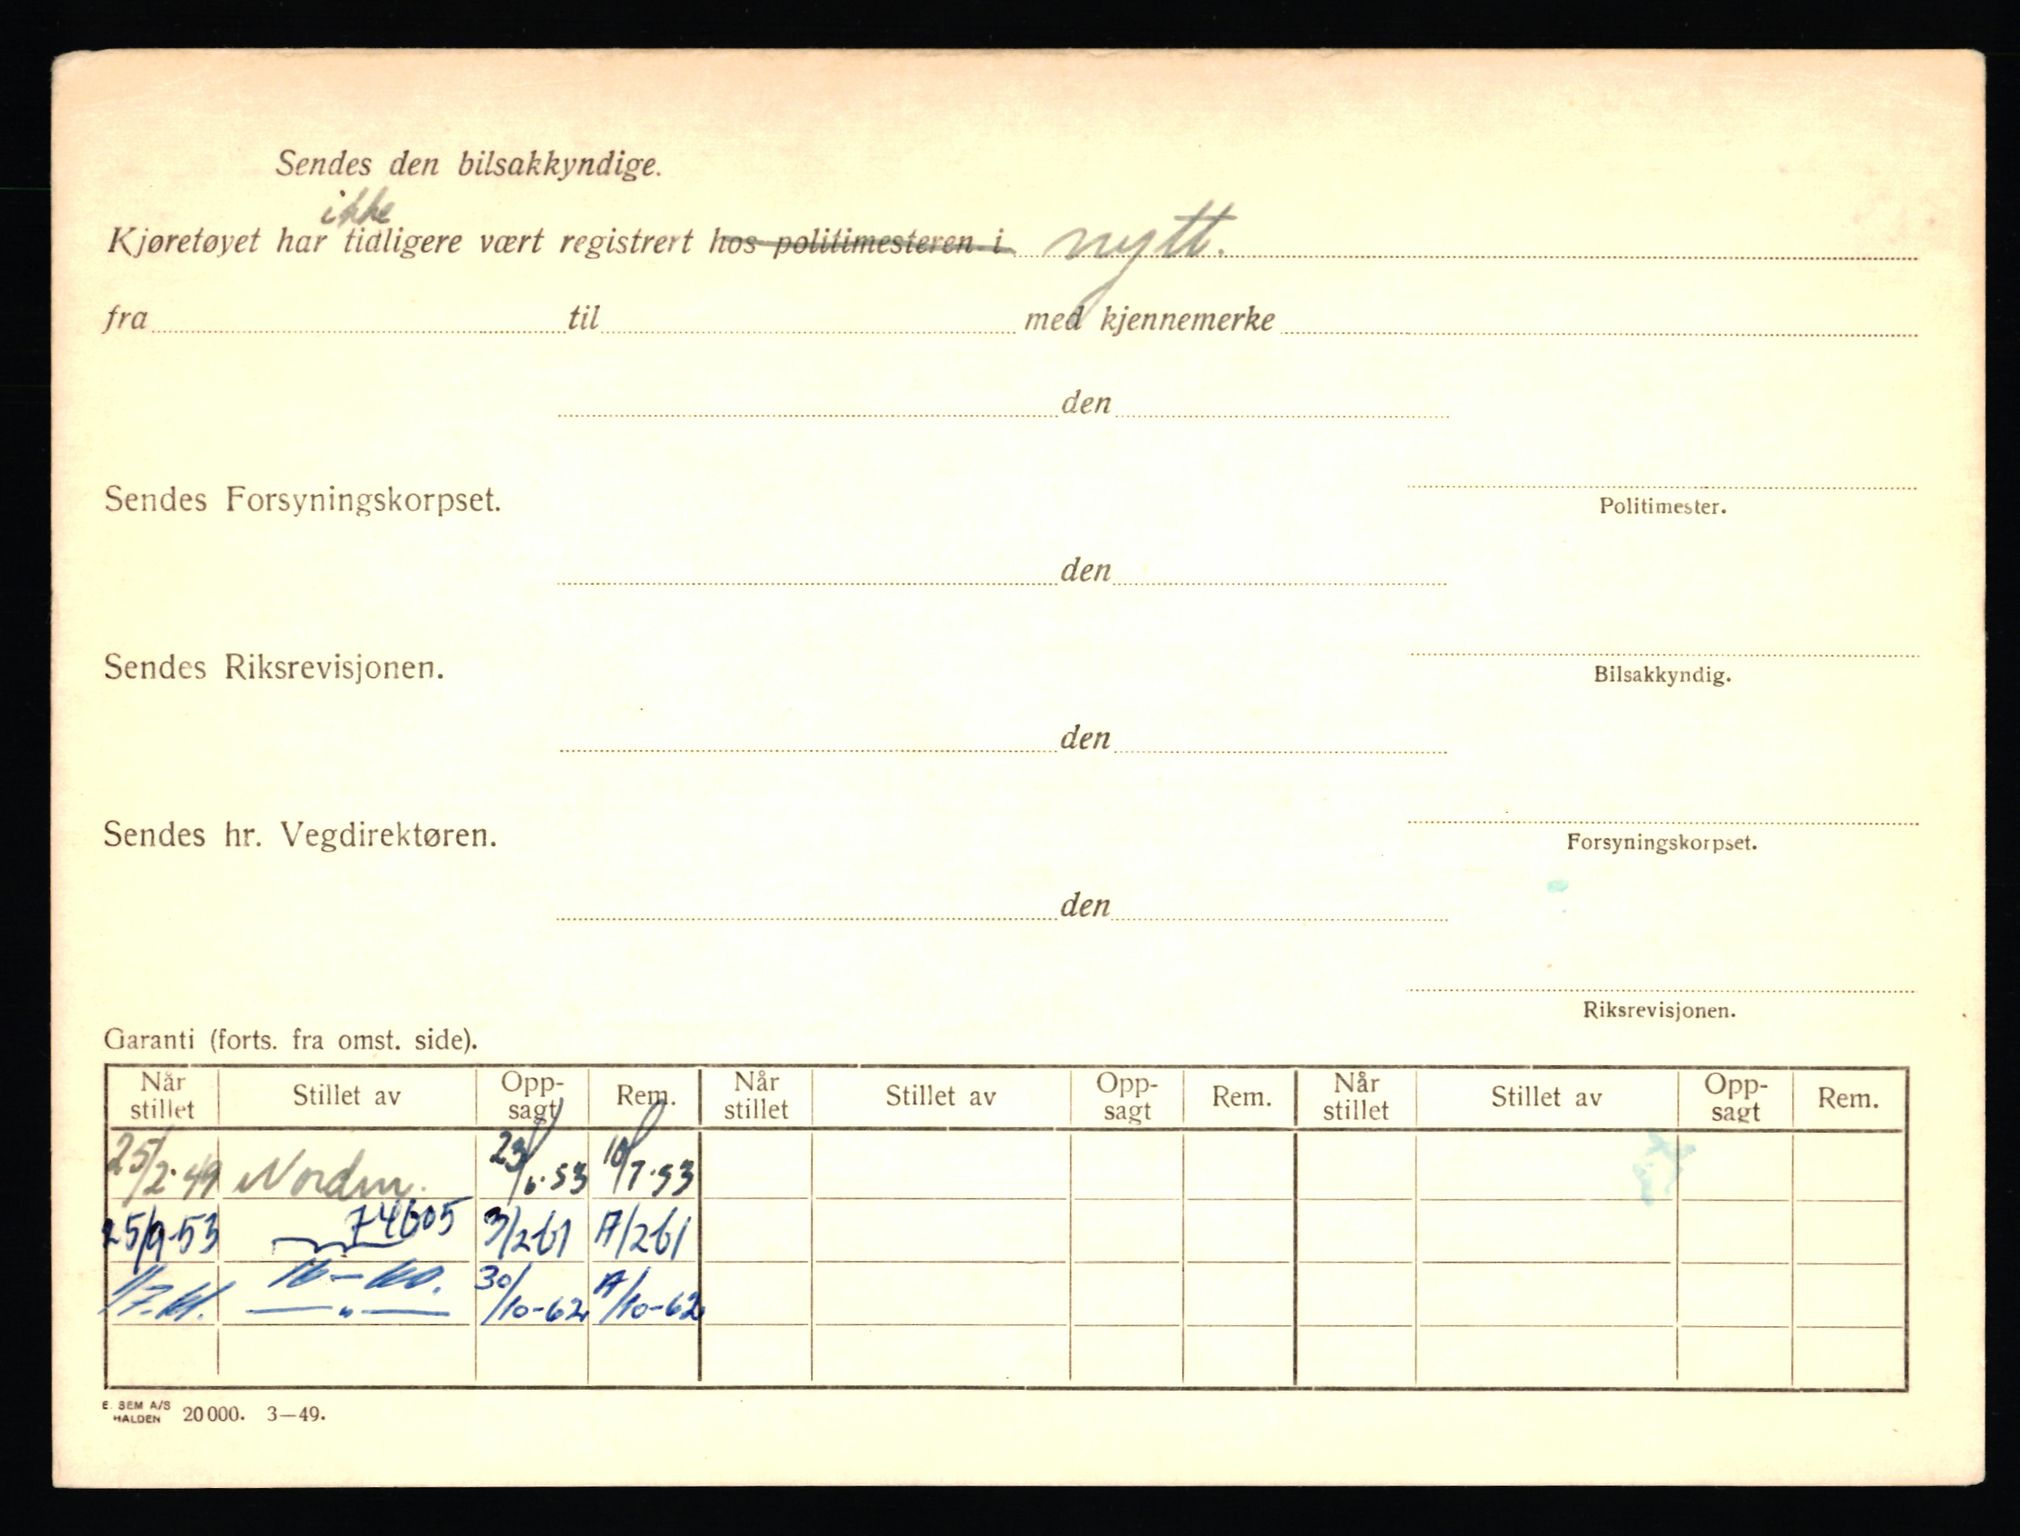 Sendes den bilsakkyndige.
ikke
Kjøretøyet har tidligere vært registrert hos politimesteren i nytt.
fra til med kjennemerke
den
Sendes Forsyningskorpset.
Politimester.
den
Sendes Riksrevisjonen.
Bilsakkyndig.
den
Sendes hr. Vegdirektøren.
Forsyningskorpset.
den
Riksrevisjonen.
Garanti (forts. fra omst. side).
Når stillet Stillet av Opp-sagt Rem. Når stillet Stillet av Opp-sagt Rem. Når stillet Stillet av Opp-sagt Rem.
25/2.49 Norden. 23/6.53 10/7.53
25/9-53 74605 3/2 61 A/2 61
1/7.61. — " — 30/10-62 A/10-62
E. SEM A/S HALDEN 20 000. 3—49.